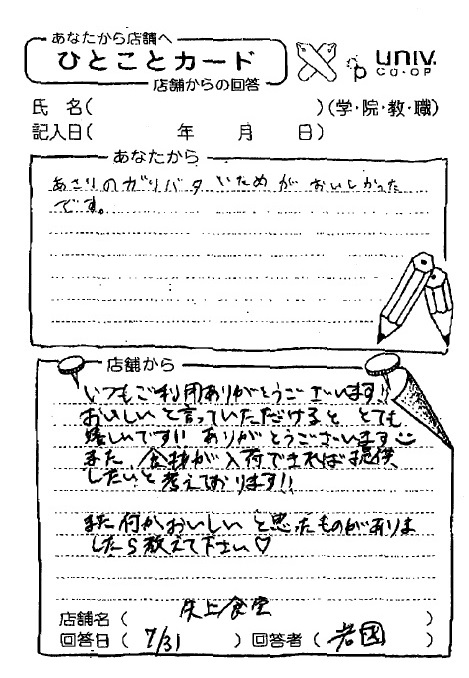 あなたから店舗へ
ひとことカード
店舗からの回答
UNIV.
CO-OP
氏 名(　　　)(学・院・教・職)
記入日(　　年　　月　　日)
あなたから
あさりのガリバタいためがおいしかった
です。
店舗から
いつもご利用ありがとうございます!!
おいしいと言っていただけると とても
嬉しいです!! ありがとうございます
また、食材が入荷できれば提供
したいと考えております!!
また何かおいしいと思ったものがありま
したら教えて下さい♡
店舗名(　　上食堂　　)
回答日( 7/31 ) 回答者( 岩國 )